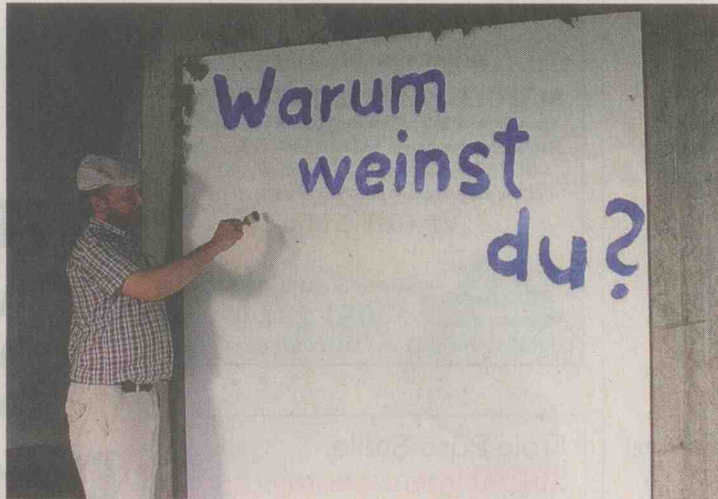 Warum
weinst
du?